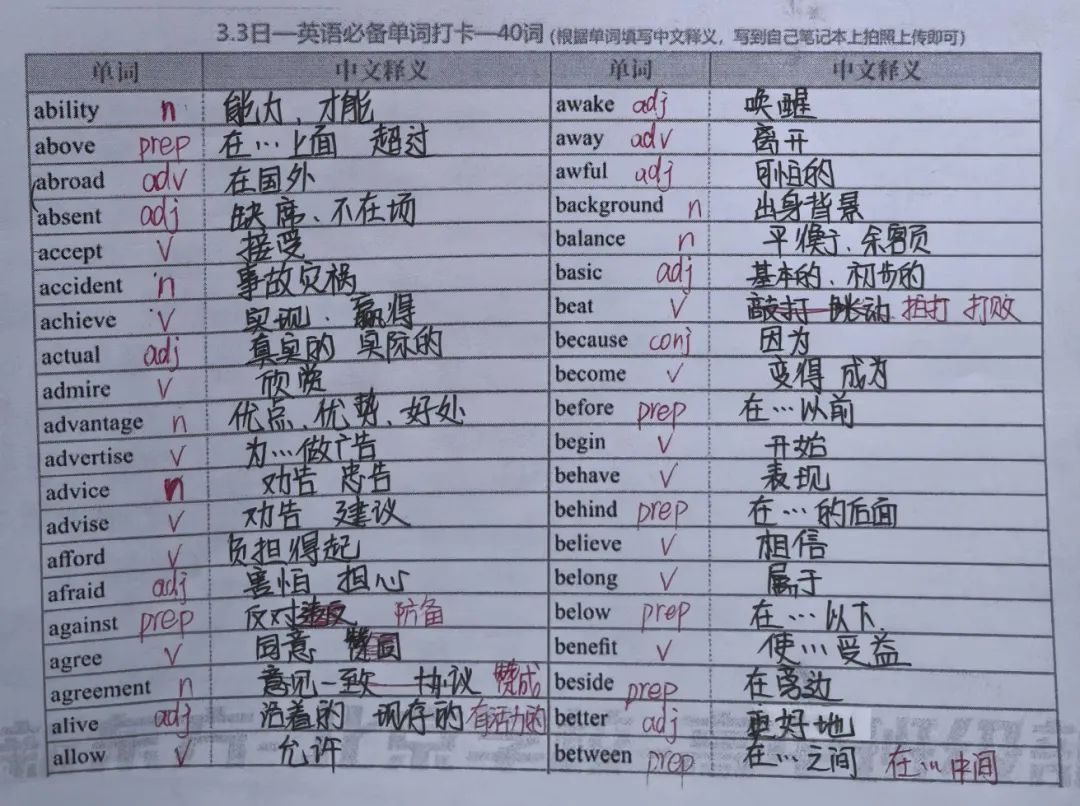 3.3日—英语必备单词打卡—40词 (根据单词填写中文释义，写到自己笔记本上拍照上传即可)
单词 中文释义 单词 中文释义
ability n 能力、才能 awake adj 唤醒
above prep 在…上面 超过 away adv 离开
abroad adv 在国外 awful adj 可怕的
absent adj 缺席、不在场 background n 出身背景
accept v 接受 balance n 平衡、余额
accident n 事故灾祸 basic adj 基本的、初步的
achieve v 实现、赢得 beat v 敲打 跳动 拍打 打败
actual adj 真实的 实际的 because conj 因为
admire v 欣赏 become v 变得 成为
advantage n 优点、优势、好处 before prep 在…以前
advertise v 为…做广告 begin v 开始
advice n 劝告 忠告 behave v 表现
advise v 劝告 建议 behind prep 在…的后面
afford v 负担得起 believe v 相信
afraid adj 害怕 担心 belong v 属于
against prep 反对 防备 below prep 在…以下
agree v 同意 benefit v 使…受益
agreement n 意见一致 协议 赞成 beside prep 在旁边
alive adj 活着的 现存的 有活力的 better adj 更好地
allow v 允许 between prep 在…之间 在…中间